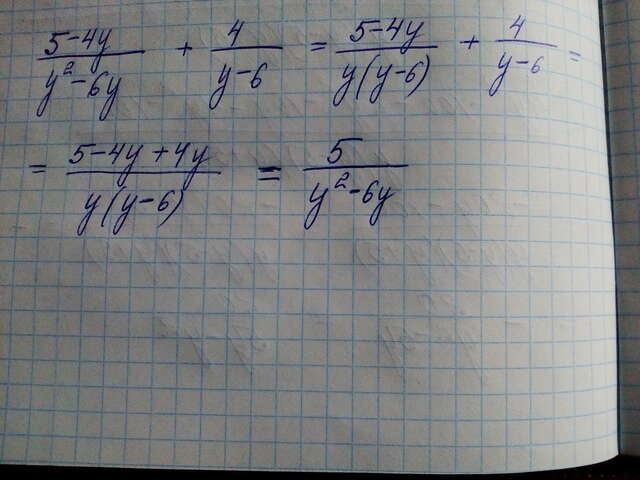 (5-4y)/(y²-6y) + 4/(y-6) = (5-4y)/(y(y-6)) + 4/(y-6) =
= (5-4y+4y)/(y(y-6)) = 5/(y²-6y)